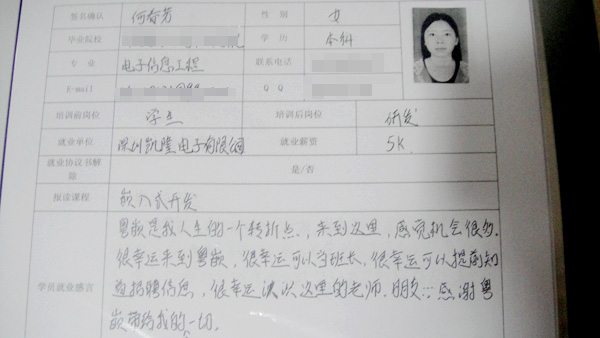 签名确认 何春芳 性 别 女
毕业院校 学 历 本科
专 业 电子信息工程 联系电话
E-mail Q Q
培训前岗位 学生 培训后岗位 研发
就业单位 深圳凯隆电子有限公司 就业薪资 5K
就业协议书解除 是/否
报读课程 嵌入式开发
学员就业感言
粤嵌是我人生的一个转折点,来到这里,感觉机会很多.
很幸运来到粤嵌,很幸运可以当班长,很幸运可以提前知
道招聘信息,很幸运认识这里的老师.朋友...感谢粤
嵌带给我的一切.